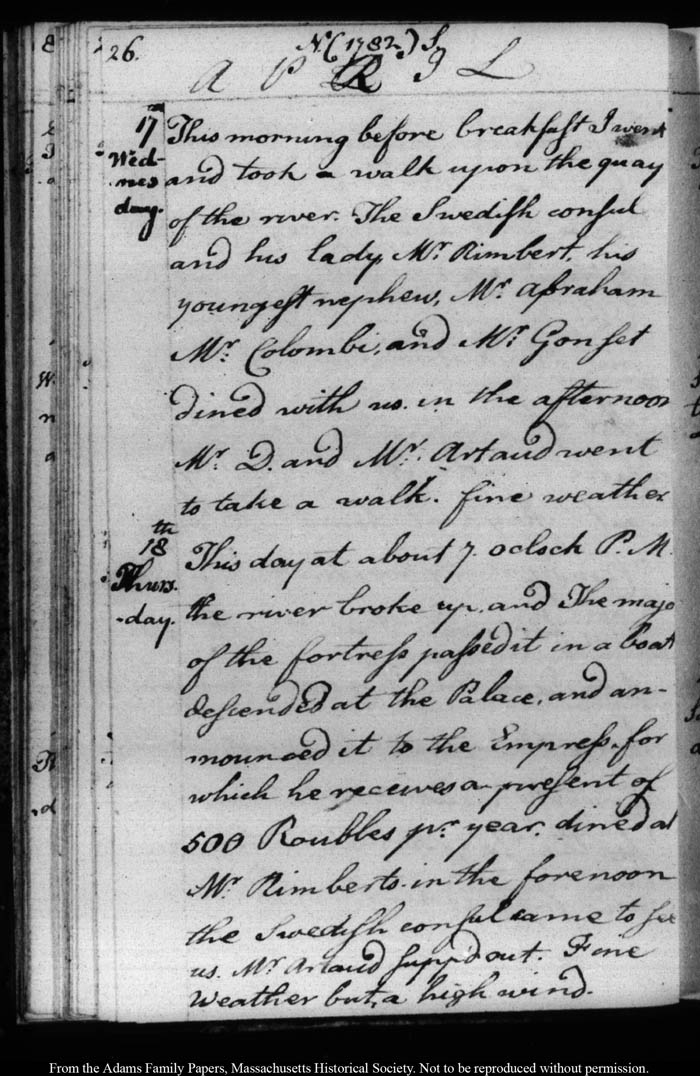 26. N.(1782.) S.
A P R I L
17 This morning before breakfast I went
Wed- and took a walk upon the quay
nes of the river. The Swedish consul
day. and his lady, Mr. Rimbert, his
youngest nephew, Mr. Abraham
Mr. Colombi, and Mr. Gonset
dined with us. in the afternoon
Mr. D. and Mr. Artaud went
to take a walk. fine weather
18th This day at about 7. oclock P. M.
Thurs. the river broke up, and The majo
-day. of the fortress passed it in a boat
descended at the Palace, and an-
mounced it to the Empress. for
which he receives a present of
500 Roubles pr. year. dined at
Mr. Rimberts. in the forenoon
the Swedish consul came to see
us. Mr Artaud supp'd out. Fine
Weather but, a high wind.
From the Adams Family Papers, Massachusetts Historical Society. Not to be reproduced without permission.